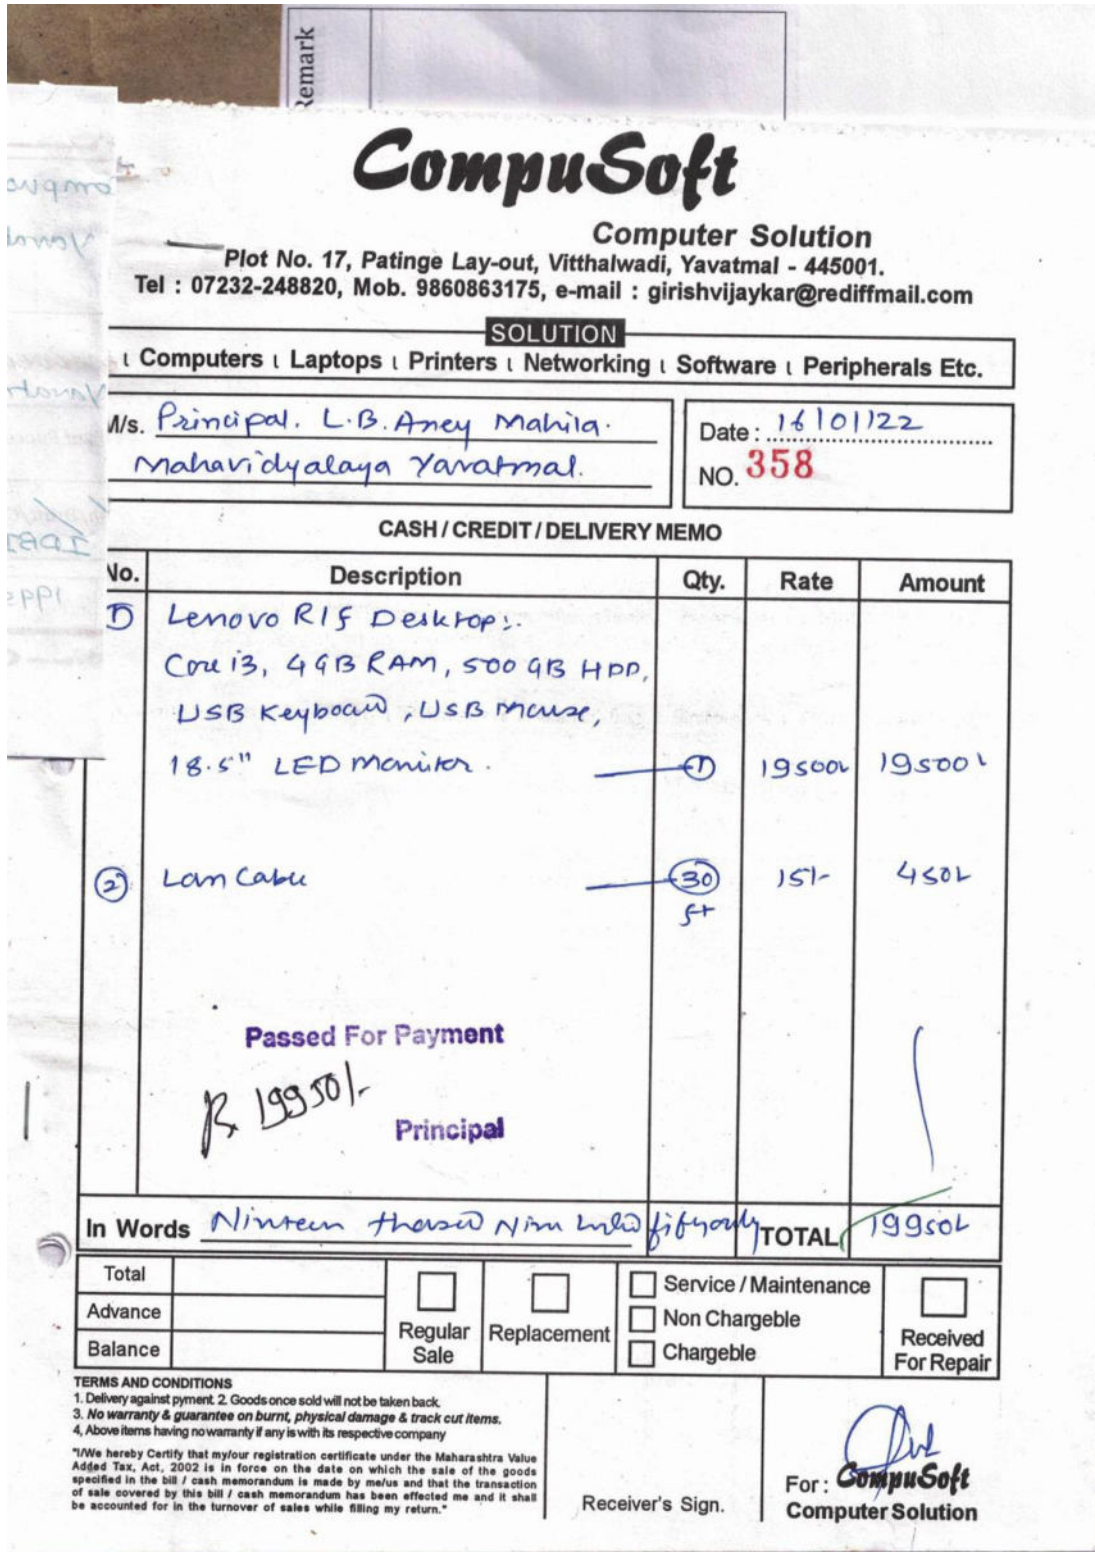 Remark
CompuSoft
Computer Solution
Plot No. 17, Patinge Lay-out, Vitthalwadi, Yavatmal - 445001.
Tel : 07232-248820, Mob. 9860863175, e-mail : girishvijaykar@rediffmail.com
SOLUTION
Computers Laptops Printers Networking Software Peripherals Etc.
M/s. Principal. L.B. Aney Mahila.
Mahavidyalaya Yavatmal.
Date : 16/01/22
NO. 358
CASH / CREDIT / DELIVERY MEMO
No. Description Qty. Rate Amount
1) Lenovo R/f Desktop:-
Core i3, 4 GB RAM, 500 GB HDD,
USB Keyboard, USB Mouse,
18.5" LED Monitor. 1 19500/- 19500/-
2 Lan Cable 30 15/- 450/-
ft
Passed For Payment
Rs 19950/-
Principal
In Words Ninteen fifty only TOTAL 19950/-
Total
Advance
Balance
Regular Sale
Replacement
Service / Maintenance
Non Chargeble
Chargeble
Received For Repair
TERMS AND CONDITIONS
1. Delivery against pyment. 2. Goods once sold will not be taken back.
3. No warranty & guarantee on burnt, physical damage & track cut items.
4, Above items having no warranty if any is with its respective company
"I/We hereby Certify that my/our registration certificate under the Maharashtra Value
Added Tax, Act, 2002 is in force on the date on which the sale of the goods
specified in the bill / cash memorandum is made by me/us and that the transaction
of sale covered by this bill / cash memorandum has been effected me and it shall
be accounted for in the turnover of sales while filling my return."
Receiver's Sign.
For : CompuSoft
Computer Solution